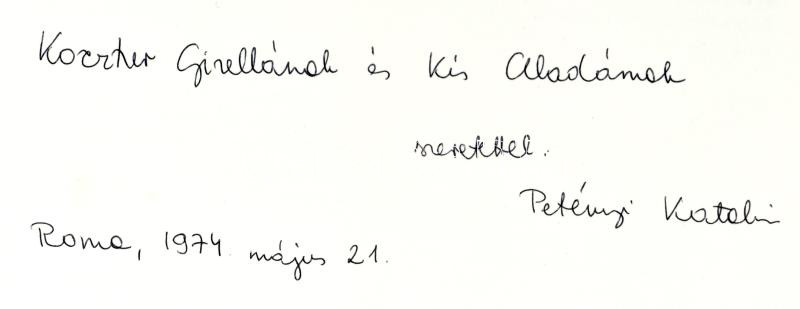 Koczher Gizellának és Kis Aladámak
szeretettel.
Petényi Katalin
Roma, 1974 május 21.